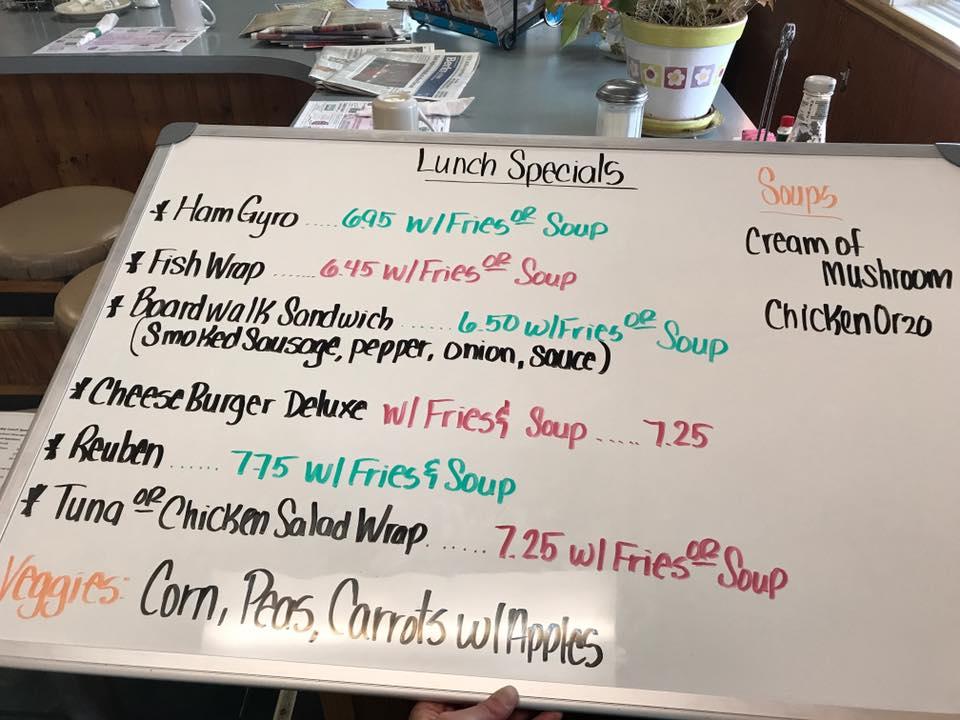 Lunch Specials
* Ham Gyro ..... 6.95 w/Fries or Soup
* Fish Wrap ....... 6.45 w/Fries or Soup
* Boardwalk Sandwich ...... 6.50 w/Fries or Soup
(Smoked Sausage, pepper, onion, sauce)
* Cheese Burger Deluxe w/ Fries & Soup ..... 7.25
* Reuben ...... 7.75 w/ Fries & Soup
* Tuna or Chicken Salad Wrap ...... 7.25 w/ Fries or Soup
Veggies: Corn, Peas, Carrots w/Apples
Soups
Cream of
Mushroom
Chicken Orzo